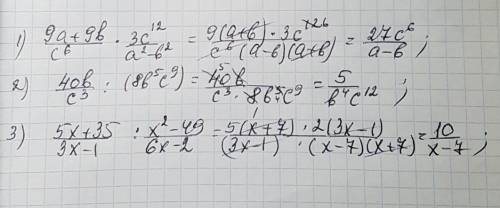 1) (9a+9b)/c⁶ · 3c¹²/(a²-b²) = 9(a+b)·3c¹²⁶/(c⁶(a-b)(a+b)) = 27c⁶/(a-b);
2) 40b/c³ : (8b⁵c⁹) = ⁵40b/(c³·8b⁵⁴c⁹) = 5/(b⁴c¹²);
3) (5x+35)/(3x-1) : (x²-49)/(6x-2) = 5(x+7)·2(3x-1)/((3x-1)·(x-7)(x+7)) = 10/(x-7);